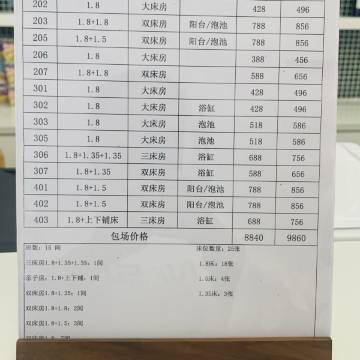 202 1.8 大床房 428 496
203 1.8+1.8 双床房 阳台/泡池 788 856
205 1.8+1.5 双床房 阳台/泡池 788 856
206 1.8 大床房 388 456
207 1.8+1.8 双床房 588 656
301 1.8 大床房 428 496
302 1.8 大床房 浴缸 428 496
303 1.8 大床房 泡池 518 586
305 1.8 大床房 泡池 518 586
306 1.8+1.35+1.35 三床房 浴缸 688 756
307 1.8+1.35 双床房 浴缸 588 656
401 1.8+1.5 双床房 阳台/泡池 788 856
402 1.8+1.5 双床房 阳台/泡池 788 856
403 1.8+上下铺床 三床房 浴缸 688 756
包场价格 8840 9860
房数：15 间 床位数量：25张
三床房1.8+1.35+1.35：1间 1.8床：18张
亲子房：1.8+上下铺：1间 1.5床：4张
双床房1.8+1.35：1间 1.35床：3张
双床房1.8+1.8：2间
双床房1.8+1.5：3间